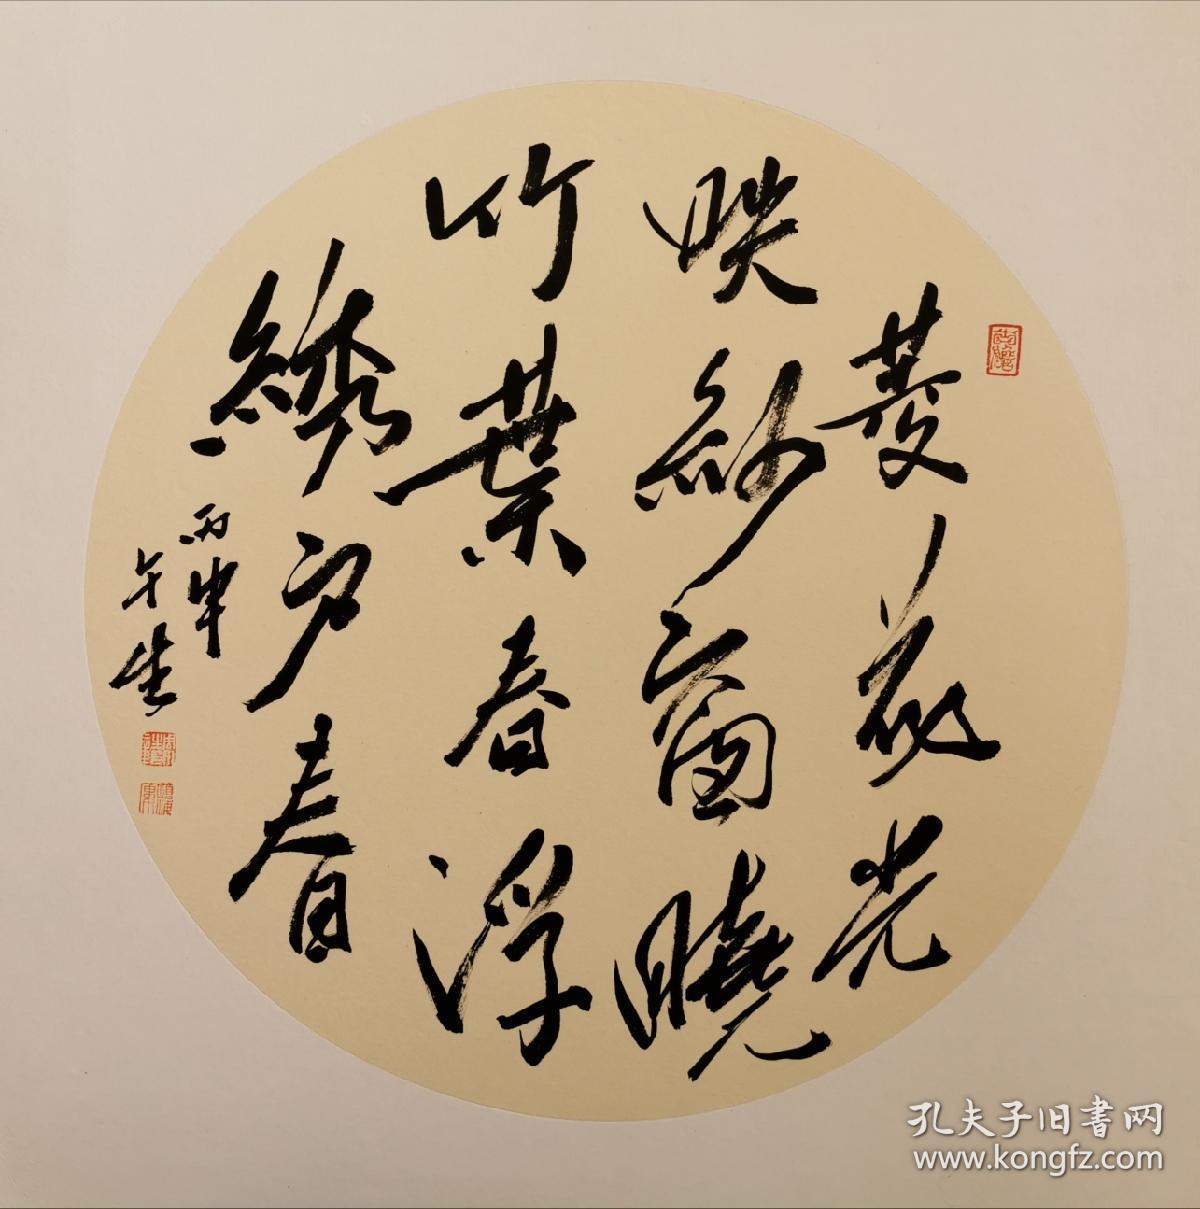 菱花光
映紗窗曉
竹葉春浮
綉户春
丙申
午生
孔夫子旧书网
www.kongfz.com